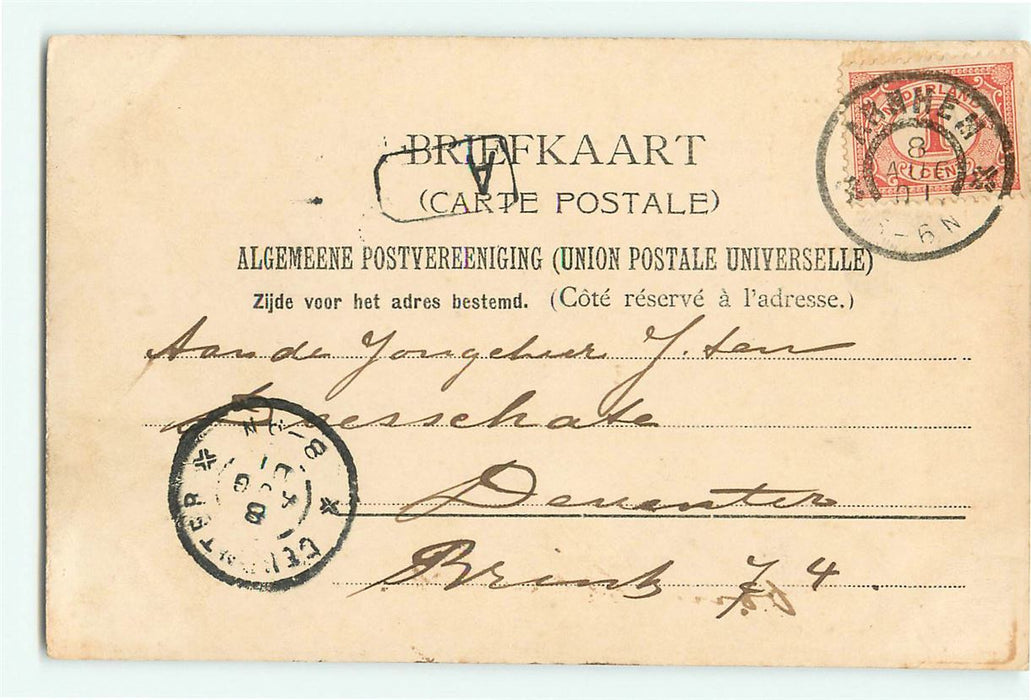 NEDERLAND
1
CENT
ARNHEM
8
AUG
01
5-6 N
BRIEFKAART
A
(CARTE POSTALE)
ALGEMEENE POSTVEREENIGING (UNION POSTALE UNIVERSELLE)
Zijde voor het adres bestemd. (Côté réservé à l'adresse.)
Aan de Jongeheer J. ten
Doesschate
Deventer
Brink 74.
DEVENTER
8 AUG 01
N